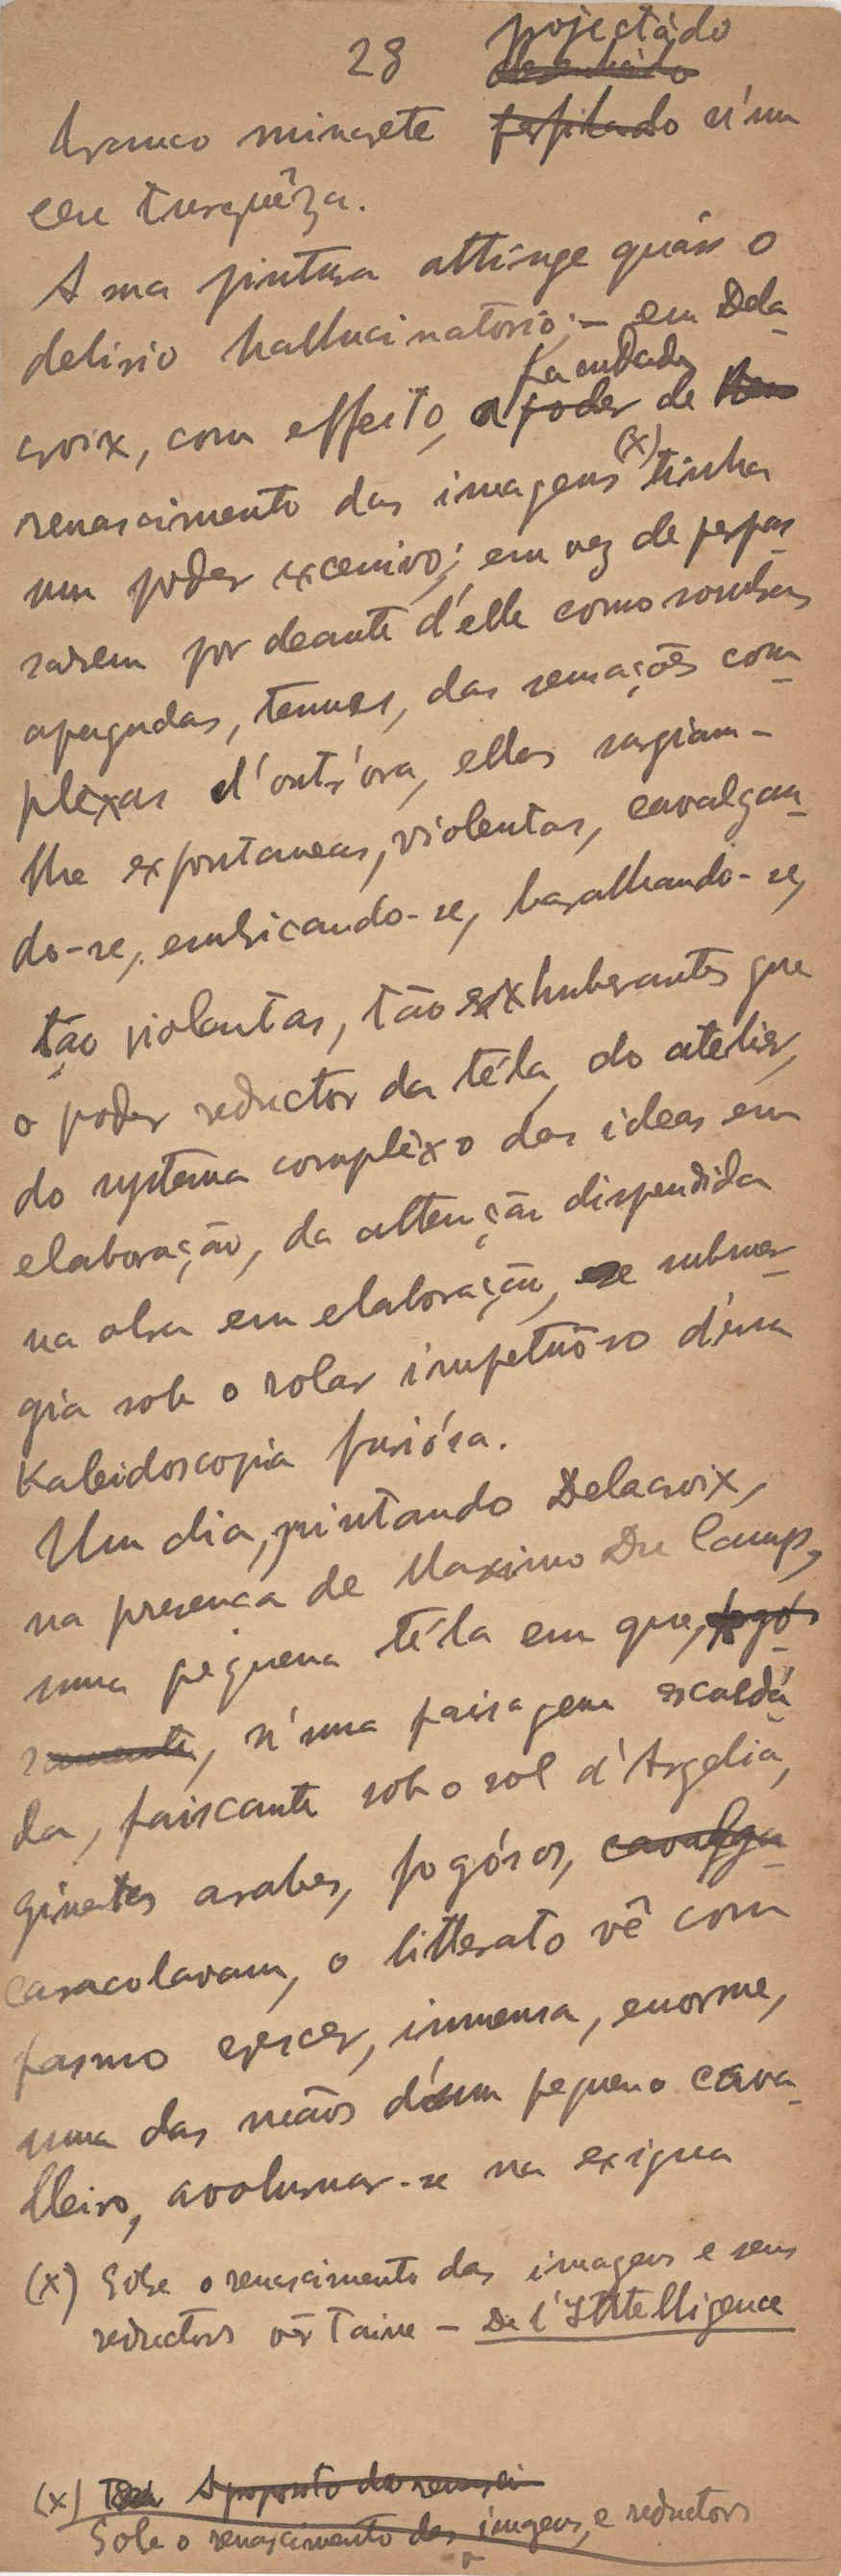 28 projectádo
desenhádo
branco minarete perfilado n'um
ceu turquêza.
A sua pintura attinge quási o
delirio hallucinatorio; – em Dela-
faculdade
croix, com effeito, a poder de
renascimento das imagens (x) tinha
um poder excessivo; em vez de perpas-
sarem por deante d'elle como sombras
apagadas, tenues, das sensações com-
plexas d'outr'ora, ellas surgiam-
lhe expontaneas, violentas, cavalgan-
do-se, embricando-se, baralhando-se,
tão violentas, tão exhuberantes que
o poder reductor da téla, do atelier,
do systema complexo das ideas em
elaboração, da attenção dispendida
na obra em elaboração, se submer-
gia sob o rolar impetuôso d'essa
Kaleidoscopia furiósa.
Um dia, pintando Delacroix,
na presença de Maximo Du Camp,
uma pequena téla em que, fogó-
samente, n'uma paisagem escaldá-
da, faiscante sob o sol d'Argelia,
ginetes arabes, fogósos, cavalga-
caracolavam, o litterato vê com
pasmo crescer, immensa, enorme,
uma das mãos d'um pequeno cava-
lleiro, avolumar-se na exigua
(x) Sobre o renascimento das imagens e seus
reductors vêr Taine – De l'Intelligence
(x) A proposito do renasci
Sobre o renascimento das imagens, e reductors